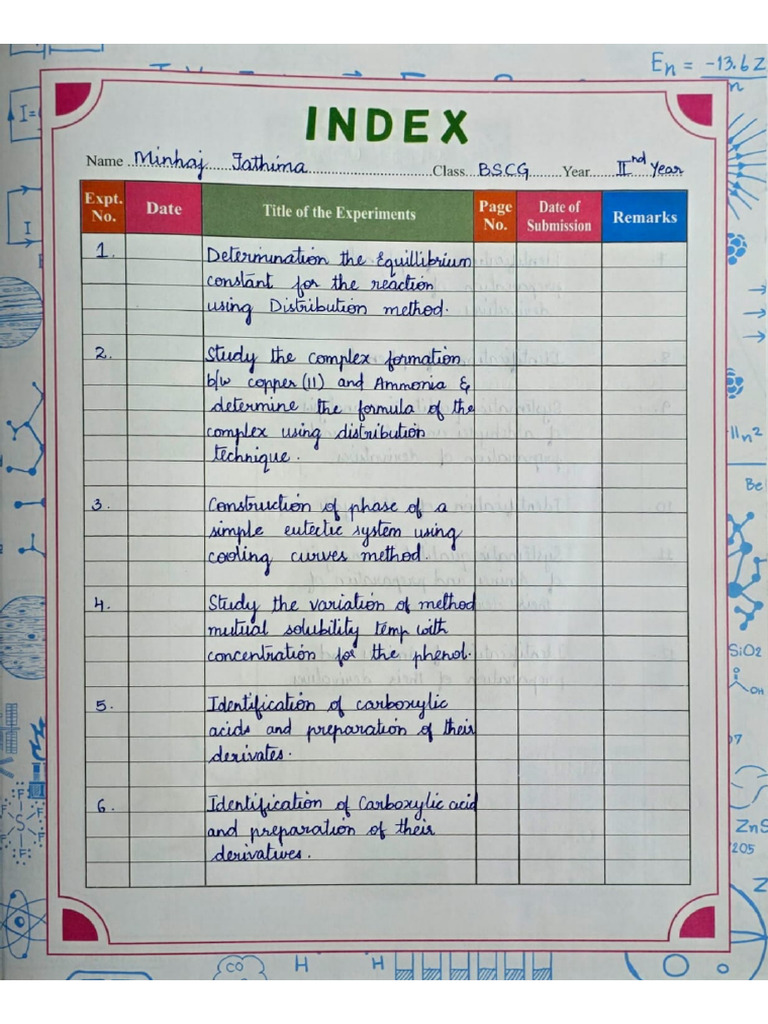 En = -13.6Z
n
I=
INDEX
Name Minhaj Fathima Class BSCG Year II nd Year
Expt. No. Date Title of the Experiments Page No. Date of Submission Remarks
1. Determination the Equillibrium
constant for the reaction
using Distribution method.
2. Study the complex formation
b/w copper (11) and Ammonia &
determine the formula of the
complex using distribution
technique.
3. Construction of phase of a
simple eutectic system using
cooling curves method.
4. Study the variation of method
mutual solubility temp with
concentration for the phenol.
5. Identification of carboxylic
acids and preparation of their
derivates.
6. Identification of Carboxylic acid
and preparation of their
derivatives.
I
Be
SiO2
OH
ZnS
205
Z
F
F
S
F
CO
H
H
O